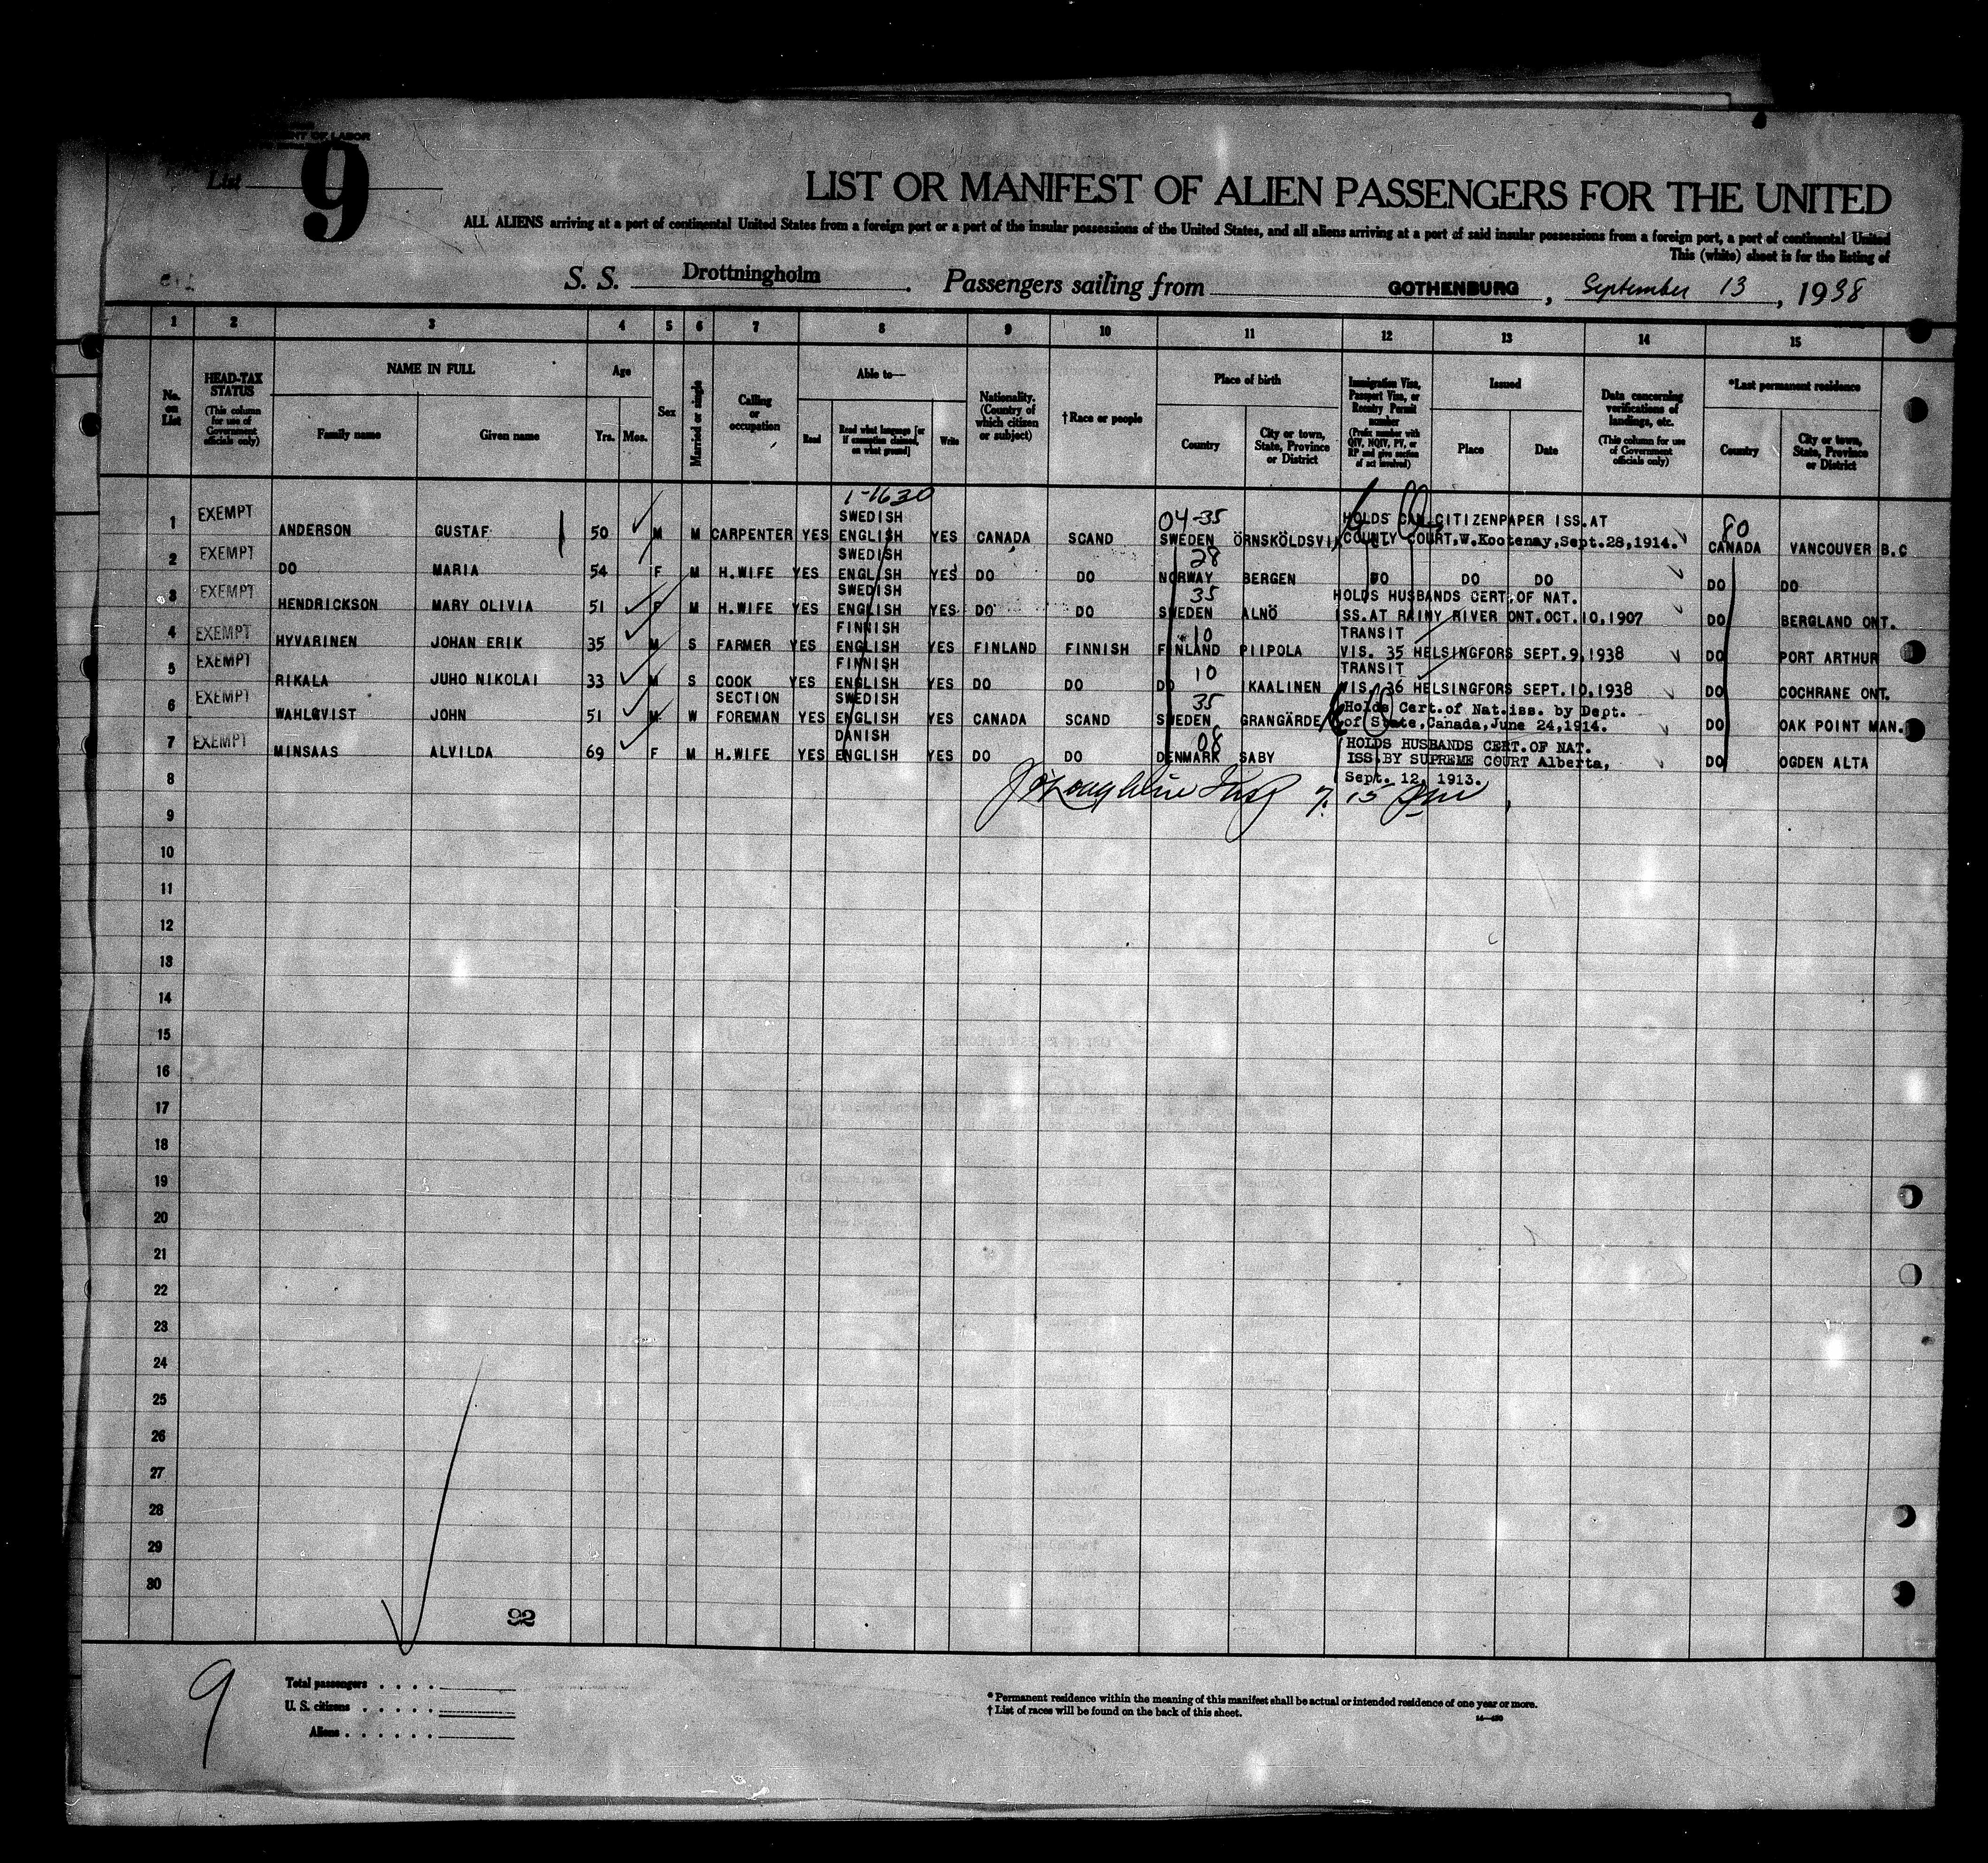 NT OF LABOR
List 9
LIST OR MANIFEST OF ALIEN PASSENGERS FOR THE UNITED
ALL ALIENS arriving at a port of continental United States from a foreign port or a port of the insular possessions of the United States, and all aliens arriving at a port of said insular possessions from a foreign port, a port of continental United
This (white) sheet is for the listing of
S. S. Drottningholm. Passengers sailing from GOTHENBURG, September 13, 1938
1 2 3 4 5 6 7 8 9 10 11 12 13 14 15
No. on List
HEAD-TAX STATUS (This column for use of Government officials only)
NAME IN FULL
Family name
Given name
Age
Yrs. Mos.
Sex
Married or single
Calling or occupation
Able to—
Read
Read what language [or if exemption claimed, on what ground]
Write
Nationality. (Country of which citizen or subject)
†Race or people
Place of birth
Country
City or town, State, Province or District
Immigration Visa, Passport Visa, or Reentry Permit number (Prefix number with QIV, NQIV, PV, or RP and give section of act involved)
Issued
Place
Date
Data concerning verifications of landings, etc. (This column for use of Government officials only)
*Last permanent residence
Country
City or town, State, Province or District
1-1630
1 EXEMPT ANDERSON GUSTAF 50 M M CARPENTER YES SWEDISH ENGLISH YES CANADA SCAND 04-35 SWEDEN ÖRNSKÖLDSVIK HOLDS CAN. CITIZENPAPER ISS. AT COUNTY COURT, W. Kootenay, Sept. 28, 1914. 80 CANADA VANCOUVER B.C
2 EXEMPT DO MARIA 54 F M H.WIFE YES SWEDISH ENGLISH YES DO DO 28 NORWAY BERGEN DO DO DO DO DO
3 EXEMPT HENDRICKSON MARY OLIVIA 51 F M H.WIFE YES SWEDISH ENGLISH YES DO DO 35 SWEDEN ALNÖ HOLDS HUSBANDS CERT. OF NAT. ISS. AT RAINY RIVER ONT. OCT. 10, 1907 DO BERGLAND ONT.
4 EXEMPT HYVARINEN JOHAN ERIK 35 M S FARMER YES FINNISH ENGLISH YES FINLAND FINNISH 10 FINLAND PIIPOLA TRANSIT VIS. 35 HELSINGFORS SEPT. 9, 1938 DO PORT ARTHUR
5 EXEMPT RIKALA JUHO NIKOLAI 33 M S COOK YES FINNISH ENGLISH YES DO DO 10 DO IKAALINEN TRANSIT VIS. 36 HELSINGFORS SEPT. 10, 1938 DO COCHRANE ONT.
6 EXEMPT WAHLQVIST JOHN 51 M W SECTION FOREMAN YES SWEDISH ENGLISH YES CANADA SCAND 35 SWEDEN GRANGÄRDE Holds Cert. of Nat. iss. by Dept. of State, Canada, June 24, 1914. DO OAK POINT MAN.
7 EXEMPT MINSAAS ALVILDA 69 F M H.WIFE YES DANISH ENGLISH YES DO DO 08 DENMARK SABY HOLDS HUSBANDS CERT. OF NAT. ISS. BY SUPREME COURT Alberta, Sept. 12, 1913. DO OGDEN ALTA
8
9
10
11
12
13
14
15
16
17
18
19
20
21
22
23
24
25
26
27
28
29
30
92
9
Total passengers . . . .
U. S. citizens . . . . .
Aliens . . . . . .
* Permanent residence within the meaning of this manifest shall be actual or intended residence of one year or more.
† List of races will be found on the back of this sheet.